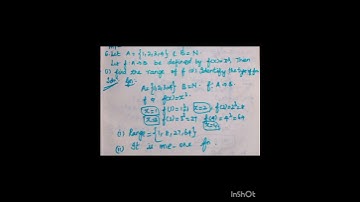 6. Let A = {1,2,3,4} & B = N.
Let f: A→B be defined by f(x)=x³. Then
(i) find the range of f (ii) Identify the type of fn
Sol: Gn:
A = {1,2,3,4} B = N. f: A→B.
f(x)=x³.
x=1 f(1)=1³=1 x=2 f(2)=2³=8
x=3 f(3)=3³=27 f(4)=4³=64
x=4
(i) Range = {1, 8, 27, 64}
(ii) It is one-one fn.
InShOt